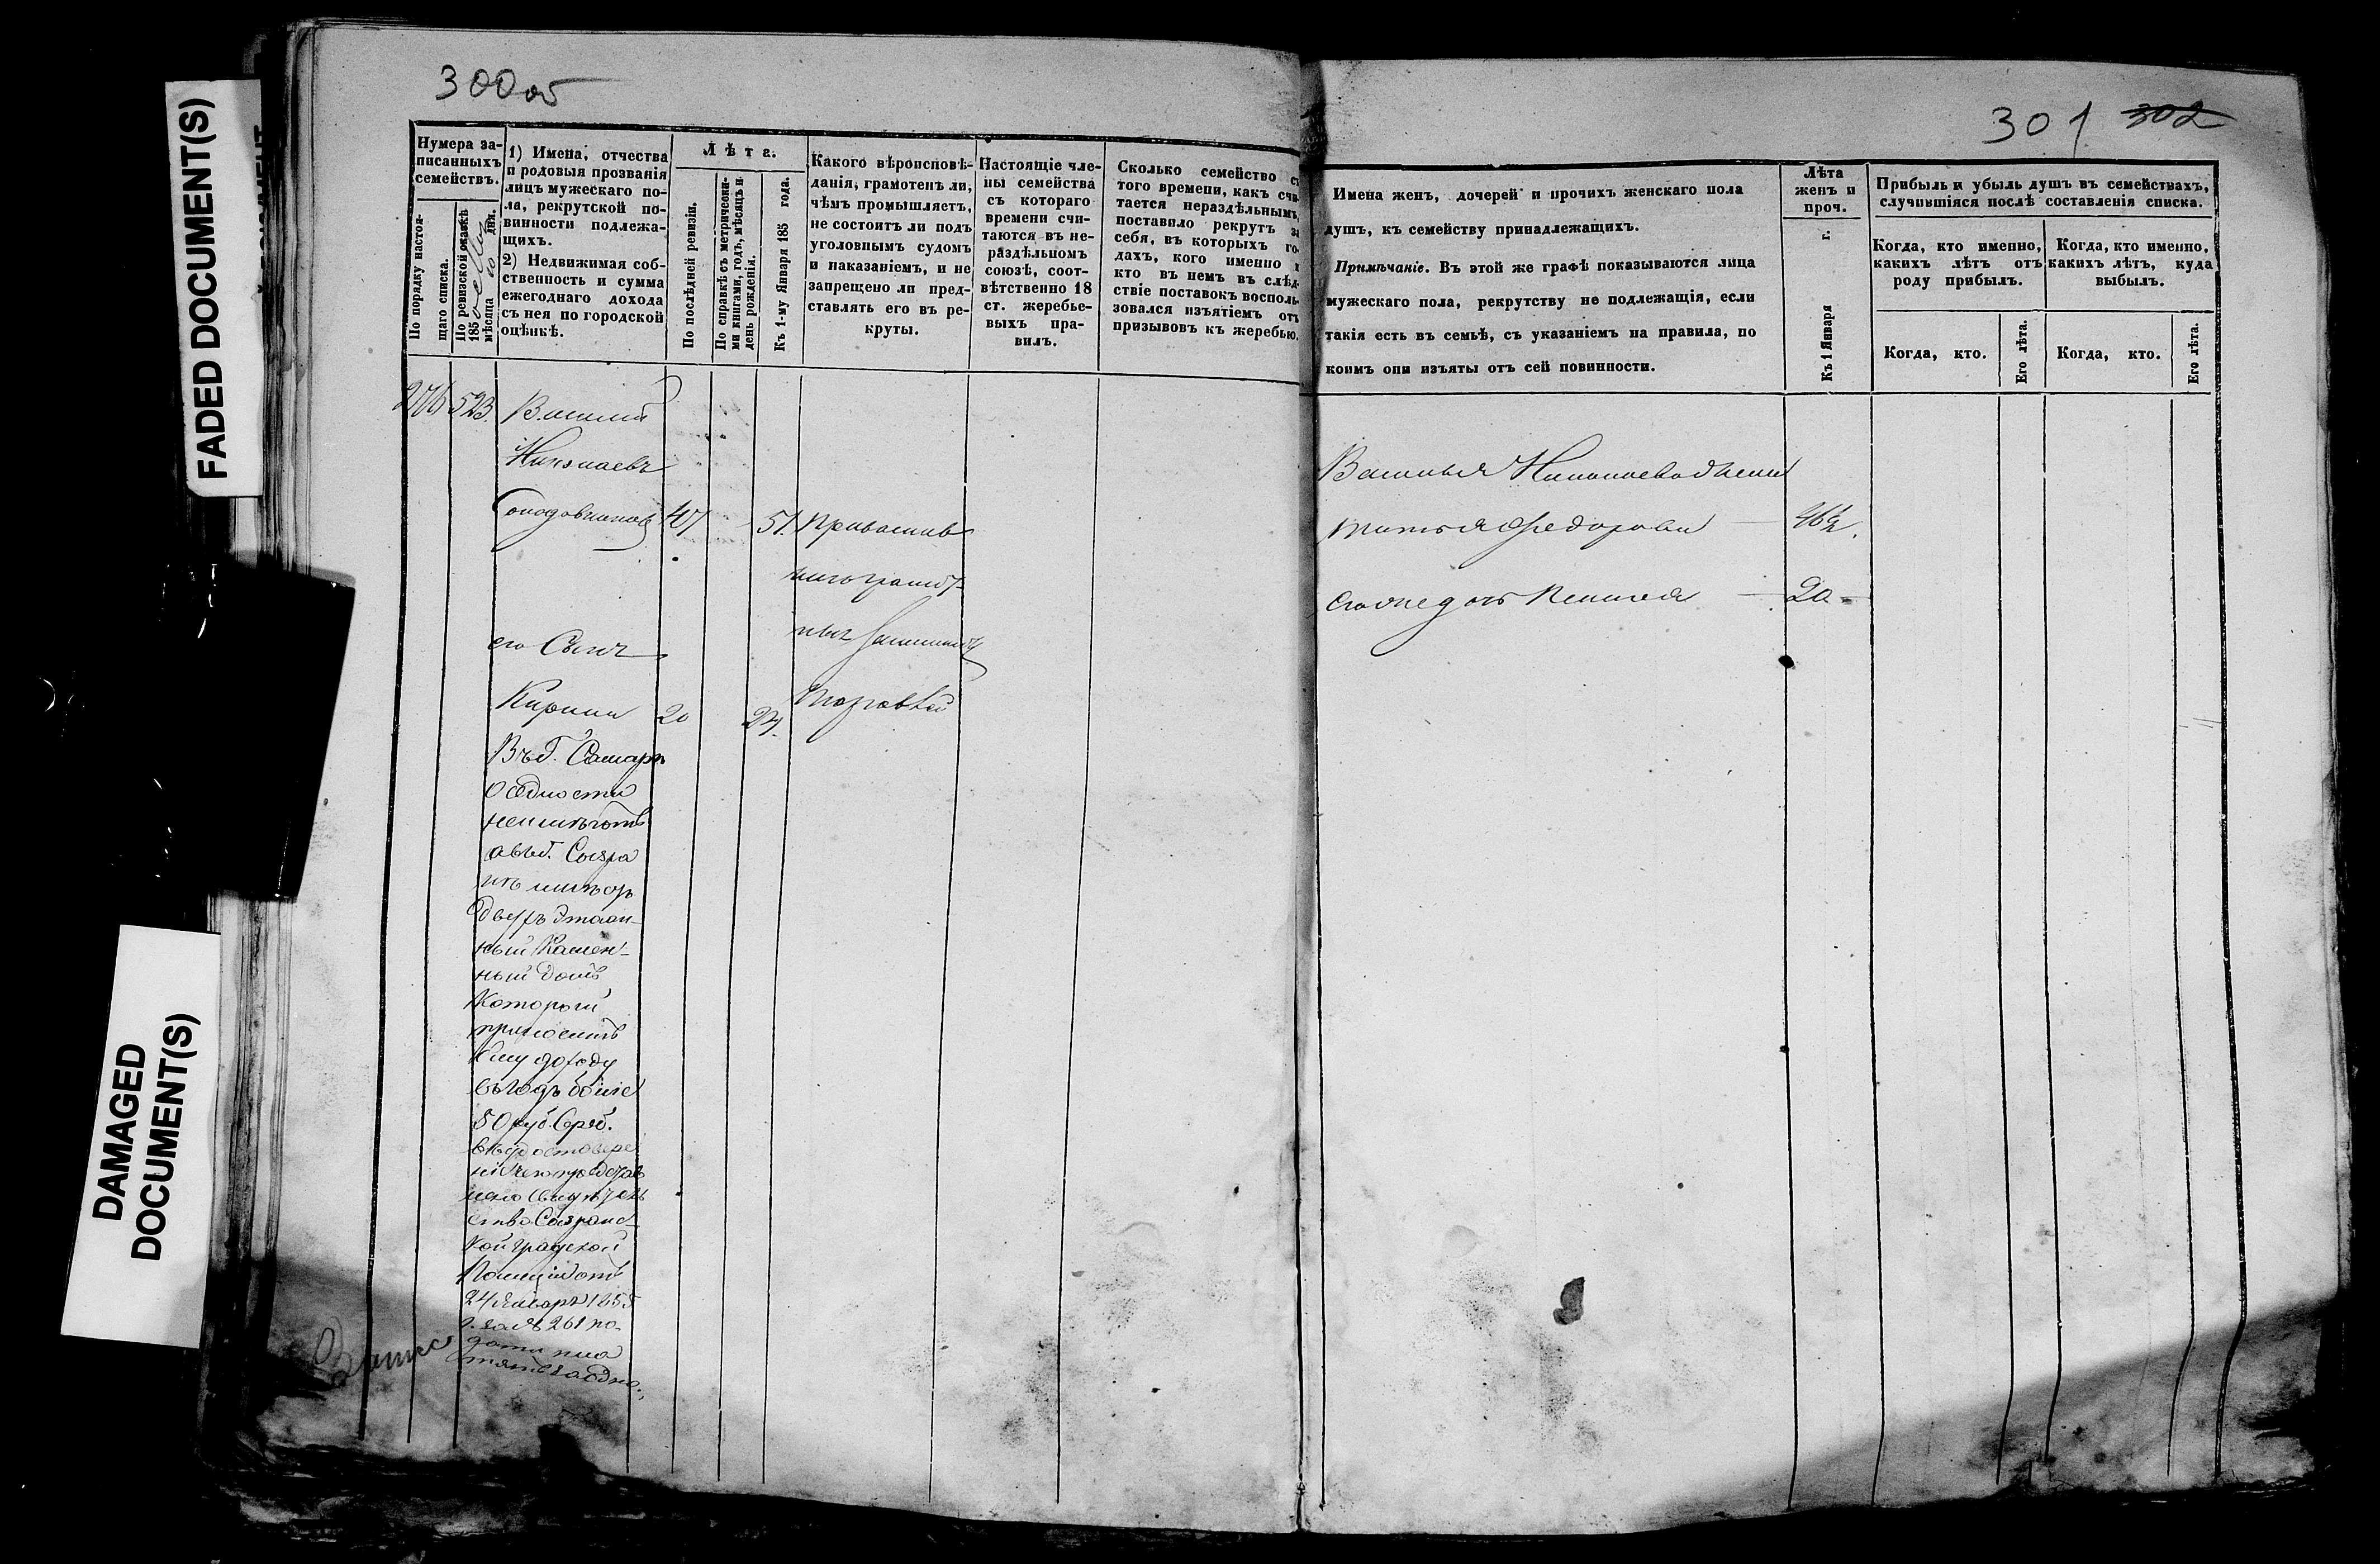 300 об
301 302
FADED DOCUMENT(S)
DAMAGED
DOCUMENT(S)
Нумера за-
писанныхъ
семействъ.
По порядку настоя-
щаго списка.
По ревизской сказкѣ
185
мѣсяца дня.
1) Имена, отчества
и родовыя прозванія
лицъ мужескаго по-
ла, рекрутской по-
винности подлежа-
щихъ.
2) Недвижимая соб-
ственность и сумма
ежегоднаго дохода
съ нея по городской
оцѣнкѣ.
Лѣта.
По послѣдней ревизіи.
По справкѣ съ метрически-
ми книгами, годъ, мѣсяцъ и
день рожденія.
Къ 1-му Января 185 года.
Какого вѣроисповѣ-
данія, грамотенъ ли,
чѣмъ промышляетъ,
не состоитъ ли подъ
уголовнымъ судомъ
и наказаніемъ, и не
запрещено ли пред-
ставлять его въ ре-
круты.
Настоящіе чле-
ны семейства
съ котораго
времени счи-
таются въ не-
раздѣльномъ
союзѣ, соот-
вѣтственно 18
ст. жеребье-
выхъ пра-
вилъ.
Сколько семейство съ
того времени, какъ счи-
тается нераздѣльнымъ,
поставило рекрутъ за
себя, въ которыхъ го-
дахъ, кого именно и
кто въ немъ въ слѣд-
ствіе поставокъ восполь-
зовался изъятіемъ отъ
призывовъ къ жеребью.
Имена женъ, дочерей и прочихъ женскаго пола
душъ, къ семейству принадлежащихъ.
Примѣчаніе. Въ этой же графѣ показываются лица
мужескаго пола, рекрутству не подлежащія, если
такія есть въ семьѣ, съ указаніемъ на правила, по
коимъ они изъяты отъ сей повинности.
Лѣта
женъ и
проч.
Къ 1 Января г.
Прибыль и убыль душъ въ семействахъ,
случившіяся послѣ составленія списка.
Когда, кто именно,
какихъ лѣтъ отъ
роду прибылъ.
Когда, кто именно,
какихъ лѣтъ, куда
выбылъ.
Когда, кто.
Его лѣта.
Когда, кто.
Его лѣта.
276 523. Василій
Николаевъ
47 51. Православ
наго грамот-
ный занимает
торговлей
его Сынъ
Кирилъ 20 24.
Въ г. Самарѣ
осѣдлости
неимѣютъ
а въ г. Сызра
нѣ имѣютъ
двухъ этаж-
ный Камен-
ный домъ
который
приноситъ
ему доходу
въ годъ болѣе
50 руб. Сереб.
въ удостовере
ніе чего представ
лено Свидѣтель
ство Сызранс-
кой градской
Полиціи отъ
24 Января 1855
г. за № 261 по
дати пла
тятъ за одно.
Василья Николаева жена
Федорова 46½.
его же дочь 20